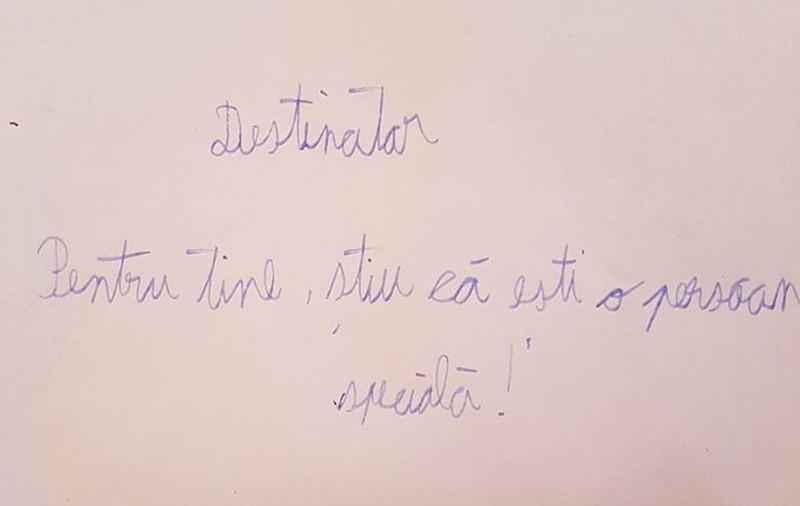 Destinatar
Pentru tine, știu că ești o persoan
specială!